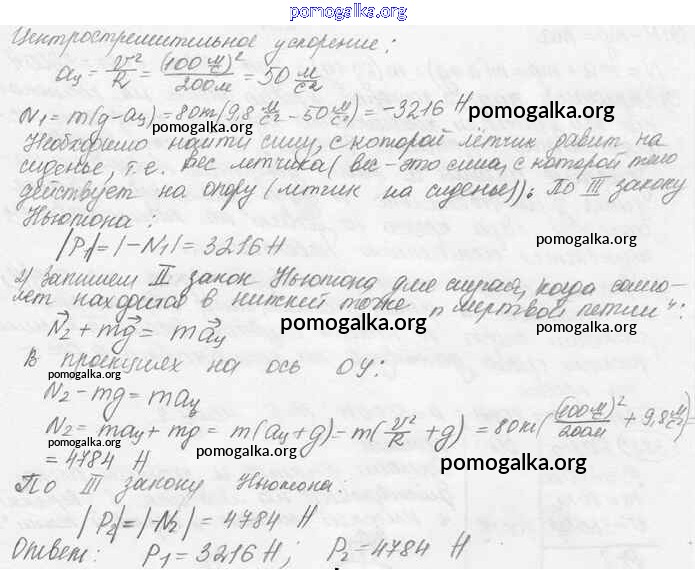 pomogalka.org
Центростремительное ускорение:
aц = v²/R = (100 м/с)²/200м = 50 м/с²
pomogalka.org
N₁ = m(g - aц) = 80 т(9,8 м/с² - 50 м/с²) = -3216 Н
pomogalka.org
Необходимо найти силу, с которой лётчик давит на
сиденье, т.е. вес летчика (вес - это сила, с которой тело
действует на опору (летчик на сиденье)). По III закону
Ньютона:
|P₁| = |-N₁| = 3216 Н
pomogalka.org
2) Запишем II закон Ньютона для случая, когда само-
лет находится в нижней точке „мертвой петли":
N⃗₂ + mg⃗ = ma⃗ц
pomogalka.org
pomogalka.org
В проекциях на ось OY:
pomogalka.org
N₂ - mg = maц
pomogalka.org
N₂ = maц + mg = m(aц + g) = m(v²/R + g) = 80 кг((100 м/с)²/200м + 9,8 м/с²) =
= 4784 Н
pomogalka.org
pomogalka.org
По III закону Ньютона:
|P₂| = |N₂| = 4784 Н
pomogalka.org
Ответ: P₁ = 3216 Н; P₂ = 4784 Н